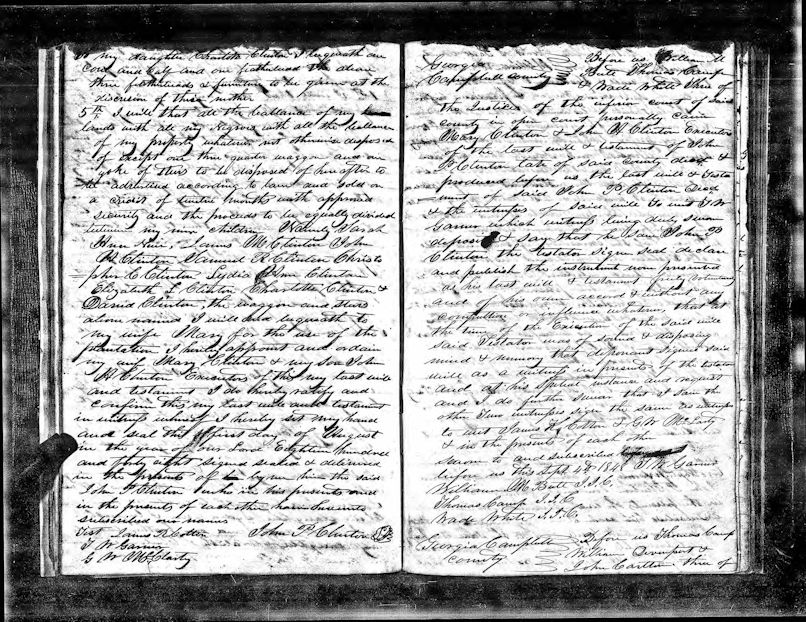 to my daughter Charlotte Clinton I bequeath one
cow and calf and one featherbed the above
three featherbeds & furniture to be given at the
discresion of their mother
5th I will that all the ballance of my
lands with all my negroes with all the ballance
of my property whatever not otherwise disposed
of except one three quarter waggon and one
yoke of steers to be disposed of
advertised according to law and sold on
a credit of twelve months with approved
security and the proceeds to be equally divided
between my nine children Namely Sarah
Ann James M Clinton John
H Clinton Samuel R Clinton Christo
pher C Clinton Lydia Ann Clinton
Elizabeth L Clinton Charlotte Clinton &
David Clinton, the waggon and steers
above named I will and bequeath to
my wife Mary for the use of the
plantation I hereby appoint and ordain
my wife Mary Clinton & my son John
H Clinton Executors of this my last will
and testament I do hereby ratify and
confirm this my last will and testament
in witness whereof I hereby set my hand
and seal this first day of August
in the year of our Lord Eighteen hundred
and forty eight signed sealed & delivered
in the presents of by me him the said
John P Clinton who in his presents and
in the presents of each other have hereunto
subscribed our names
Test James H Cotton John P Clinton
T W Garner
G W McClarty
Georgia Before us William M
Campbell County Butt Thomas Camp
& Wade White three of
the Justices of the inferior court of said
county in open court personally came
Mary Clinton & John H Clinton Executors
of the last will & testament of John
P Clinton late of said County decd &
produced before us the last will & Testa
ment of said John P Clinton Decd
& the witnesses of said will To wit T W
Garner which witness being duly sworn
deposes & say that he saw John P
Clinton the testator sign seal declare
and publish the instrument now presented
as his last will & testament
and of his own accord & without any
compultion or influence whatever, that at
the time of the Execution of the said will
said Testator was of sound & disposing
mind & memory that deponant signed said
will as a witness in presents of the testator
and at his special instance and request
and I do further swear that I saw the
other two witnesses sign the same as witnesses
to wit James H Cotton & G W McClarty
& in the presents of each other
sworn to and subscribed
before us this Sept 4th 1848 T W Garner
William M Butt J.I.C.
Thomas Camp J.I.C.
Wade White J.I.C.
Georgia Campbell Before us Thomas Camp
County William Davenport &
John Carlton three of